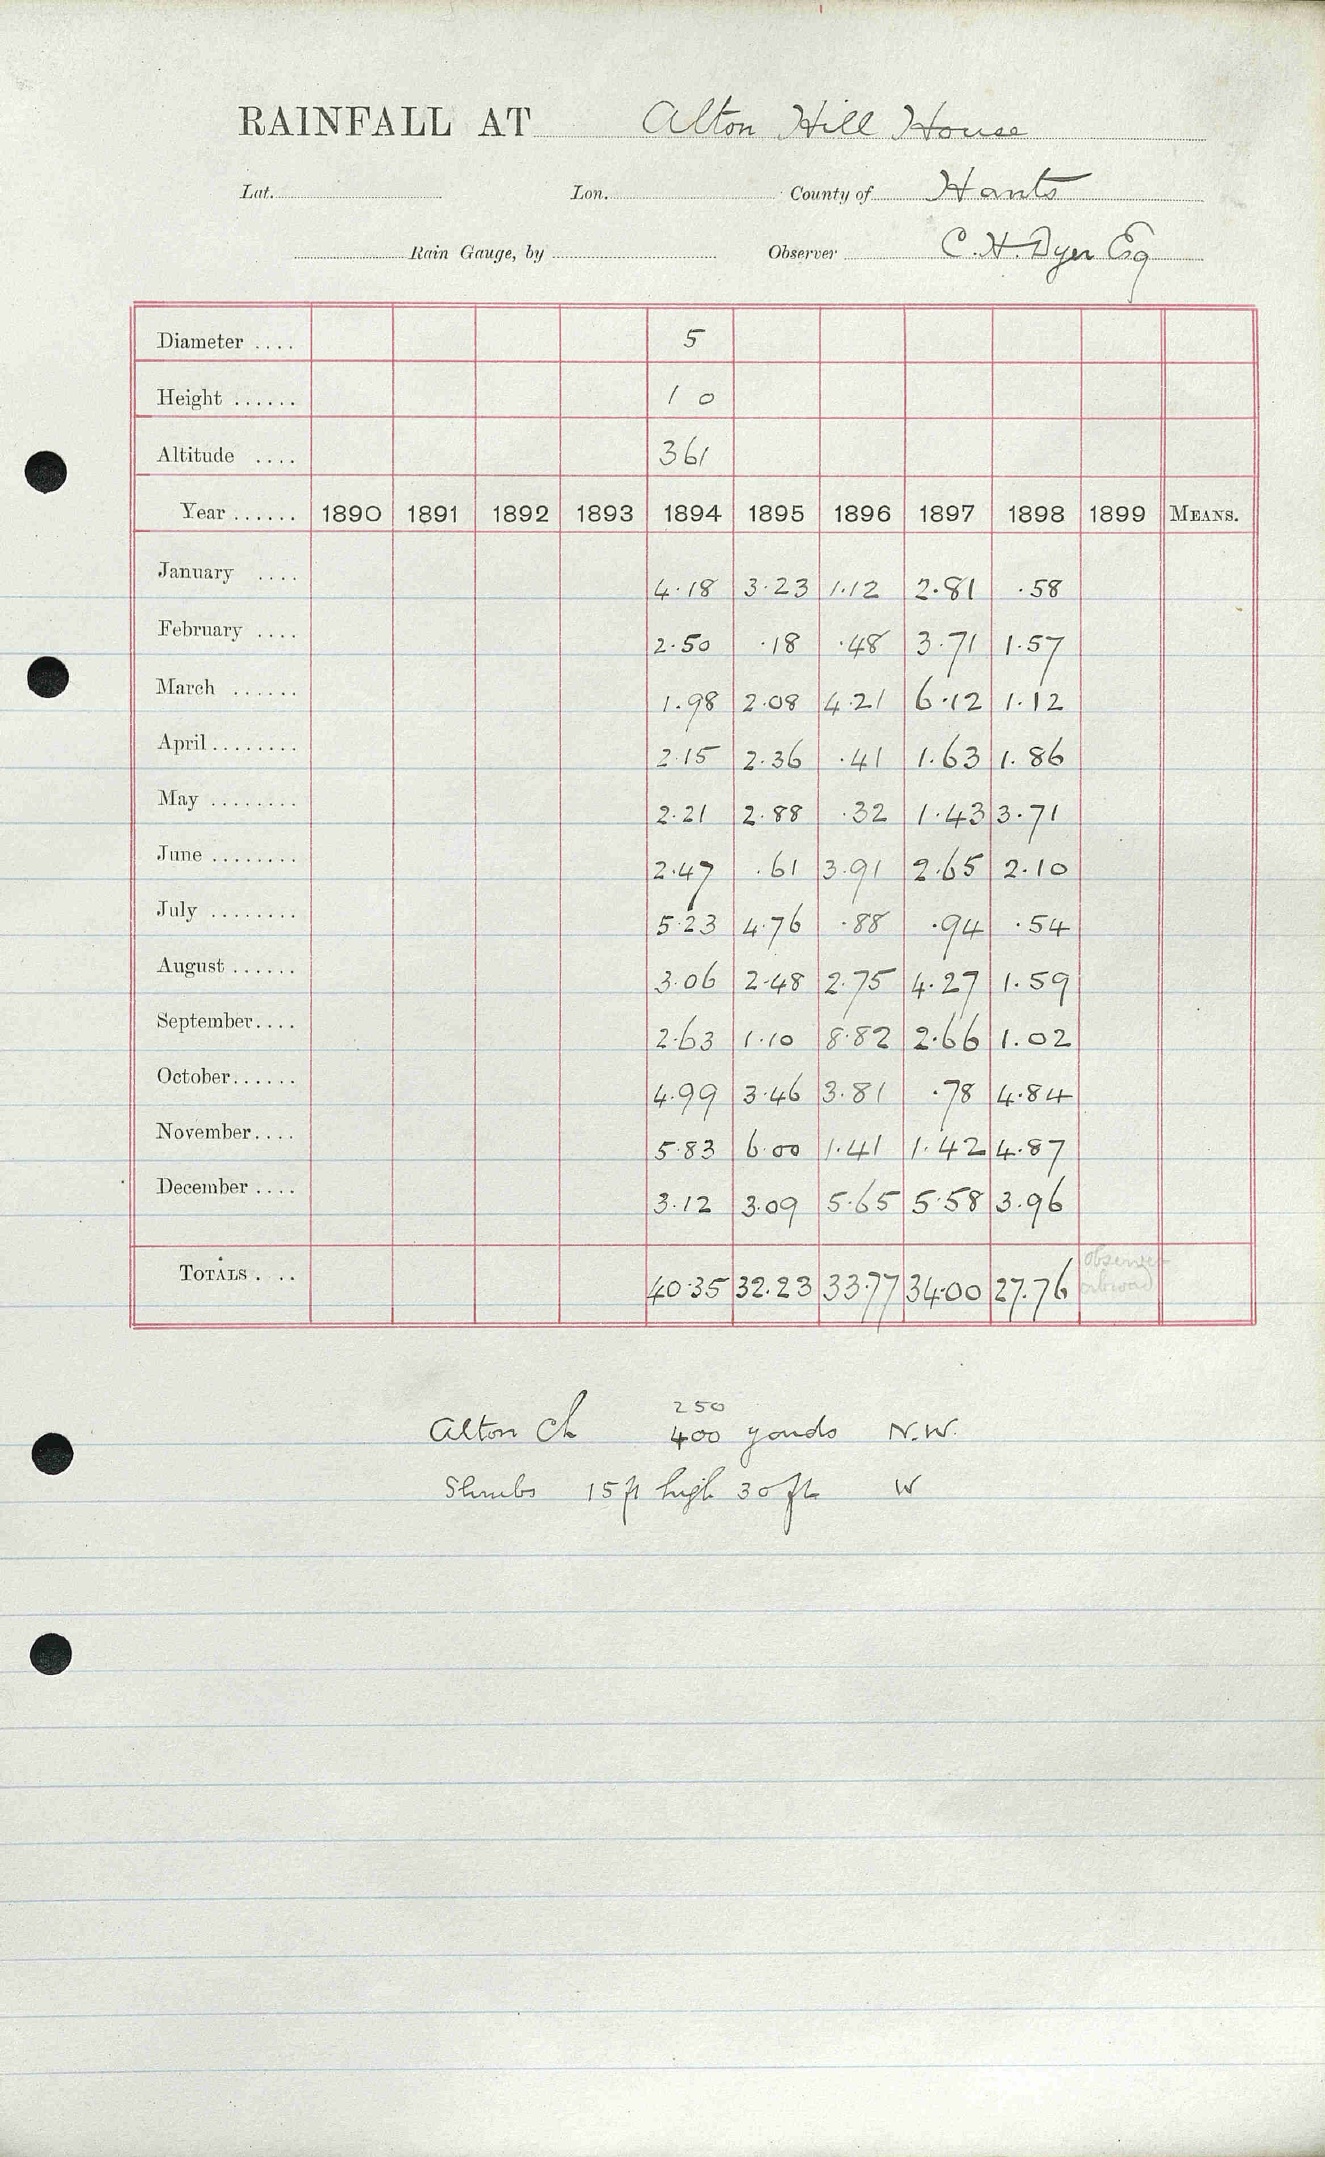 RAINFALL AT Alton Hill House
Lat. Lon. County of Hants
Rain Gauge, by Observer C. H. Dyer Esq
Diameter .... 5
Height ...... 1 0
Altitude .... 361
Year ...... 1890 1891 1892 1893 1894 1895 1896 1897 1898 1899 MEANS.
January .... 4.18 3.23 1.12 2.81 .58
February .... 2.50 .18 .48 3.71 1.57
March ...... 1.98 2.08 4.21 6.12 1.12
April ........ 2.15 2.36 .41 1.63 1.86
May ........ 2.21 2.88 .32 1.43 3.71
June ........ 2.47 .61 3.91 2.65 2.10
July ........ 5.23 4.76 .88 .94 .54
August ...... 3.06 2.48 2.75 4.27 1.59
September.... 2.63 1.10 8.82 2.66 1.02
October...... 4.99 3.46 3.81 .78 4.84
November.... 5.83 6.00 1.41 1.42 4.87
December .... 3.12 3.09 5.65 5.58 3.96
TOTALS . .. 40.35 32.23 33.77 34.00 27.76 observer
abroad
250
Alton Ch 400 yards N.W.
Shrubs 15 ft high 30 ft W